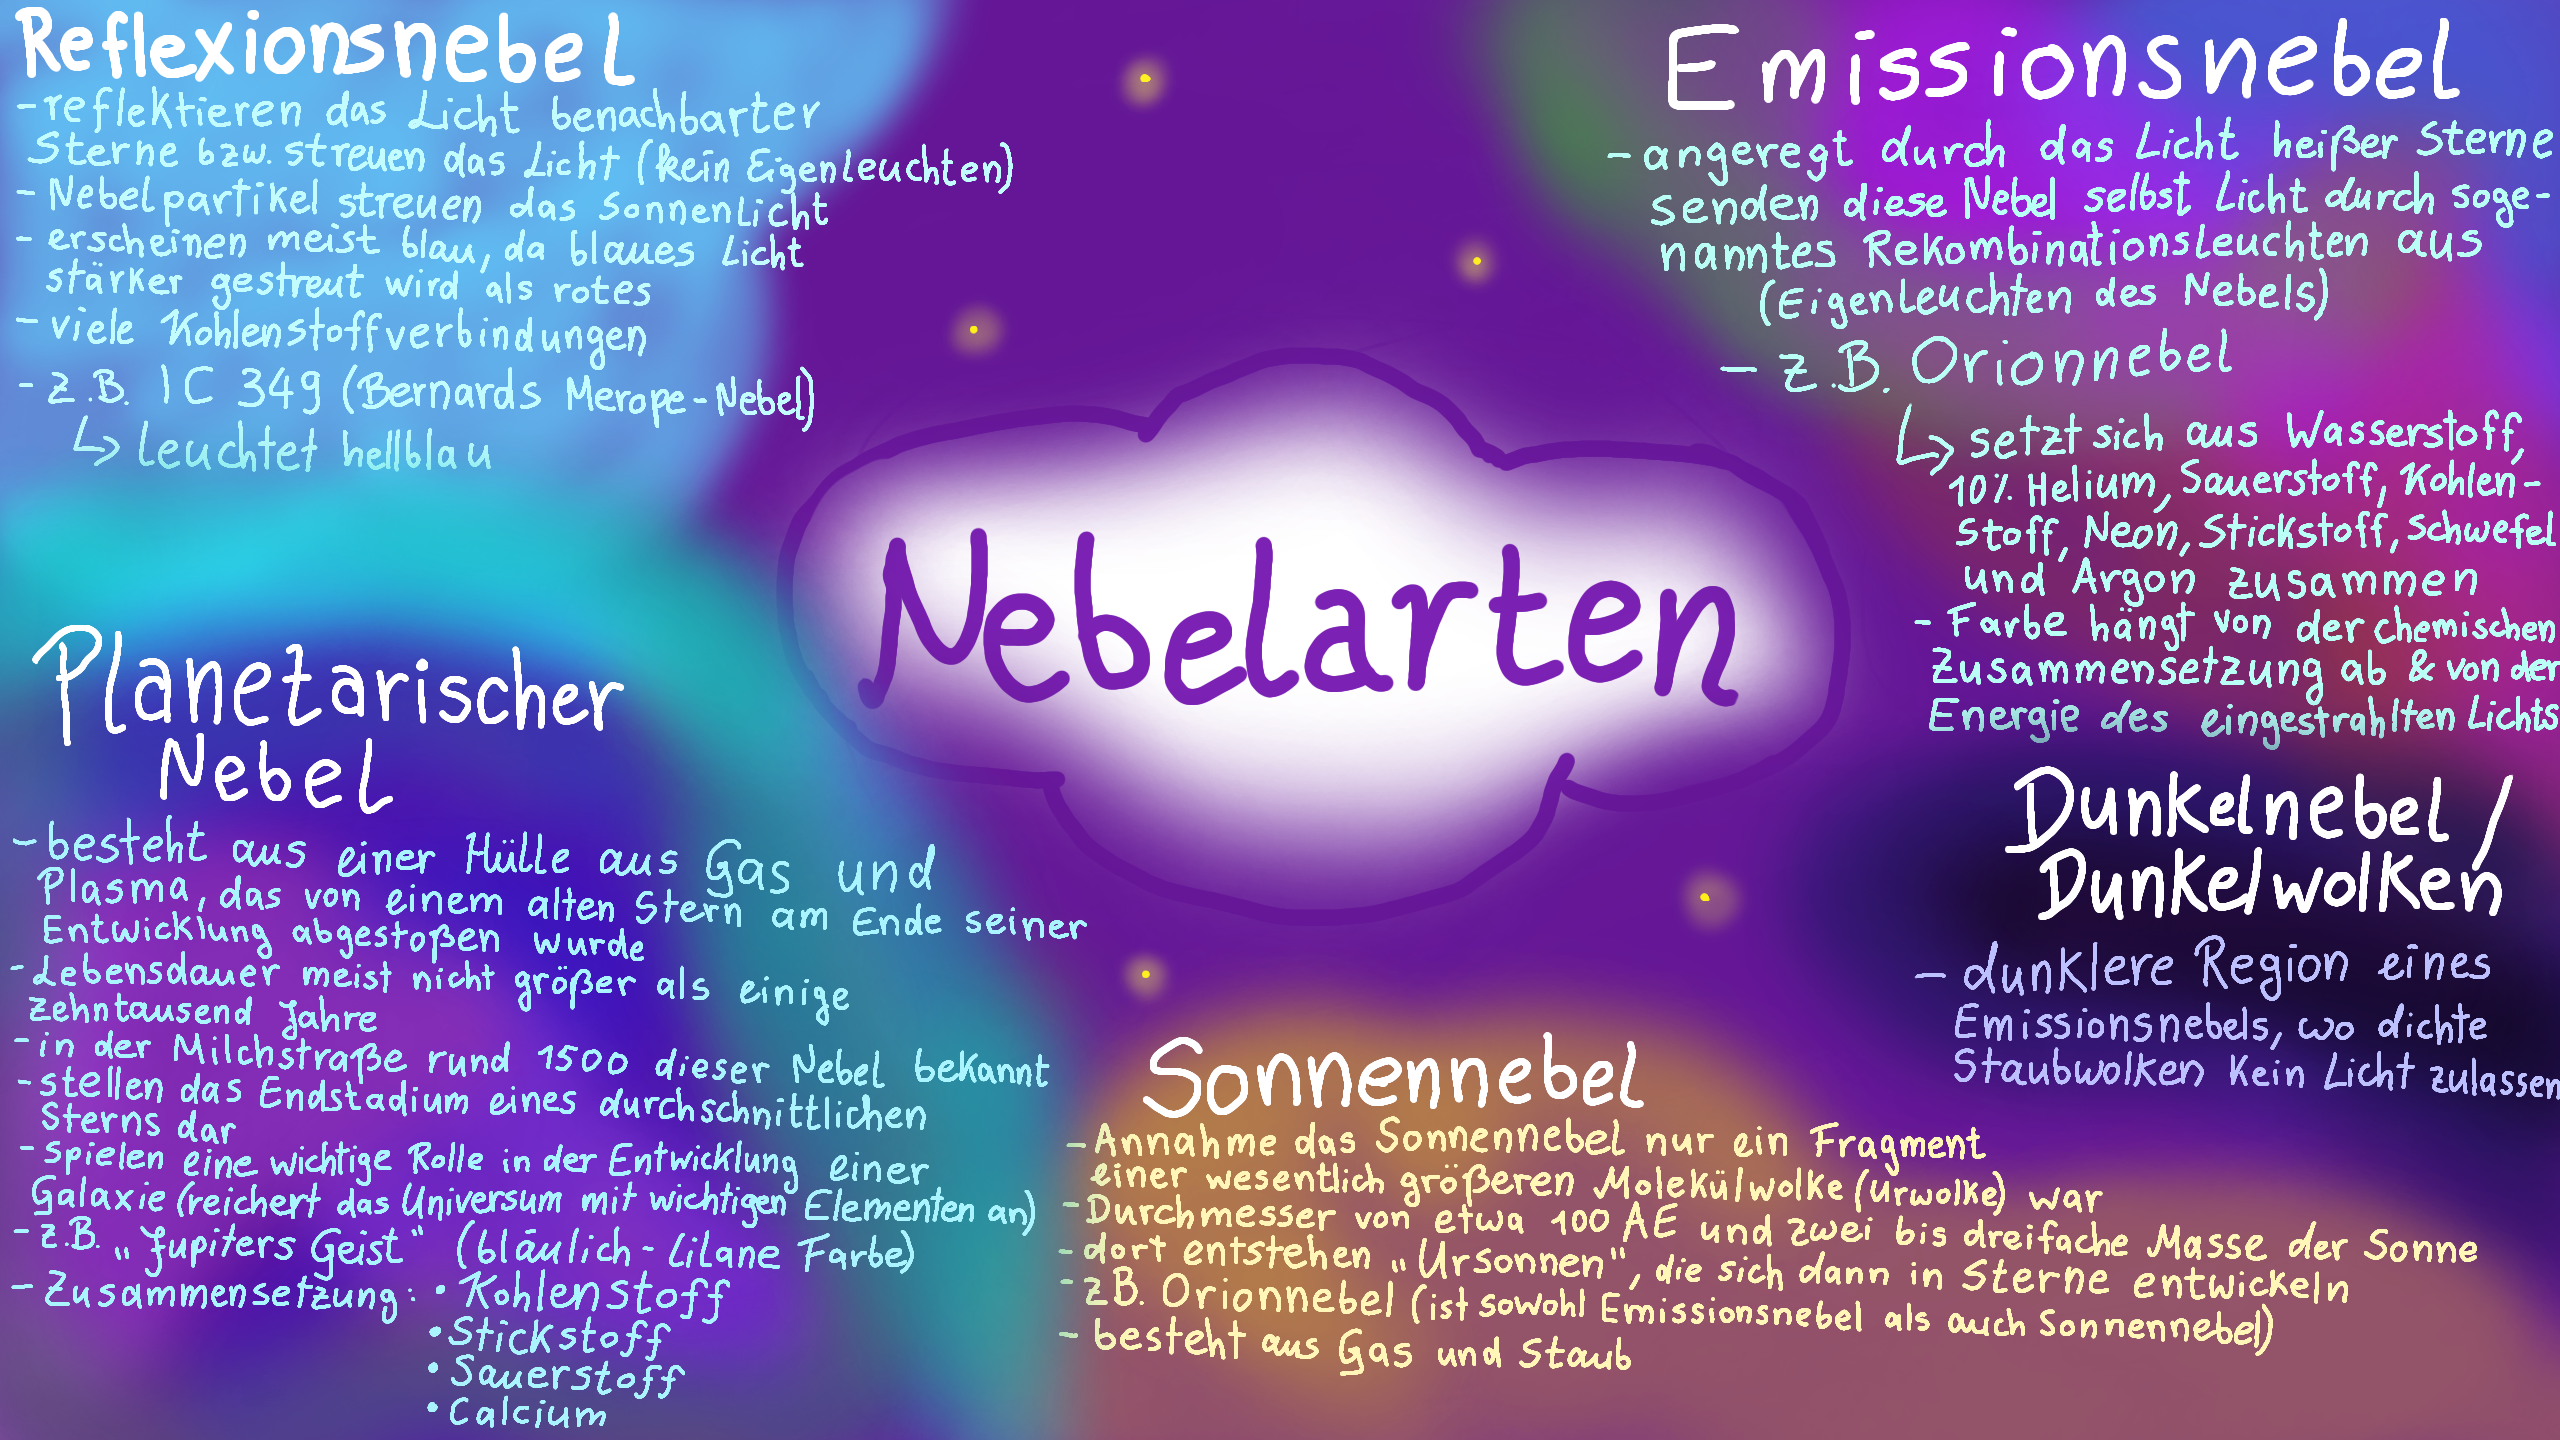 Reflexionsnebel
-reflektieren das Licht benachbarter
Sterne bzw. streuen das Licht (kein Eigenleuchten)
- Nebelpartikel streuen das Sonnenlicht
- erscheinen meist blau, da blaues Licht
stärker gestreut wird als rotes
- viele Kohlenstoffverbindungen
- z.B. IC 349 (Bernards Merope-Nebel)
↳ leuchtet hellblau
Emissionsnebel
- angeregt durch das Licht heißer Sterne
senden diese Nebel selbst Licht durch soge-
nanntes Rekombinationsleuchten aus
(Eigenleuchten des Nebels)
- z.B. Orionnebel
↳ setzt sich aus Wasserstoff,
10% Helium, Sauerstoff, Kohlen-
stoff, Neon, Stickstoff, Schwefel
und Argon zusammen
- Farbe hängt von der chemischen
Zusammensetzung ab & von der
Energie des eingestrahlten Lichts
Nebelarten
Planetarischer
Nebel
- besteht aus einer Hülle aus Gas und
Plasma, das von einem alten Stern am Ende seiner
Entwicklung abgestoßen wurde
- Lebensdauer meist nicht größer als einige
zehntausend Jahre
- in der Milchstraße rund 1500 dieser Nebel bekannt
- stellen das Endstadium eines durchschnittlichen
Sterns dar
- spielen eine wichtige Rolle in der Entwicklung einer
Galaxie (reichert das Universum mit wichtigen Elementen an)
- z.B. „Jupiters Geist" (bläulich-lilane Farbe)
- Zusammensetzung: • Kohlenstoff
• Stickstoff
• Sauerstoff
• Calcium
Dunkelnebel /
Dunkelwolken
- dunklere Region eines
Emissionsnebels, wo dichte
Staubwolken kein Licht zulassen
Sonnennebel
- Annahme das Sonnennebel nur ein Fragment
einer wesentlich größeren Molekülwolke (Urwolke) war
- Durchmesser von etwa 100 AE und zwei bis dreifache Masse der Sonne
- dort entstehen „Ursonnen", die sich dann in Sterne entwickeln
- z.B. Orionnebel (ist sowohl Emissionsnebel als auch Sonnennebel)
- besteht aus Gas und Staub